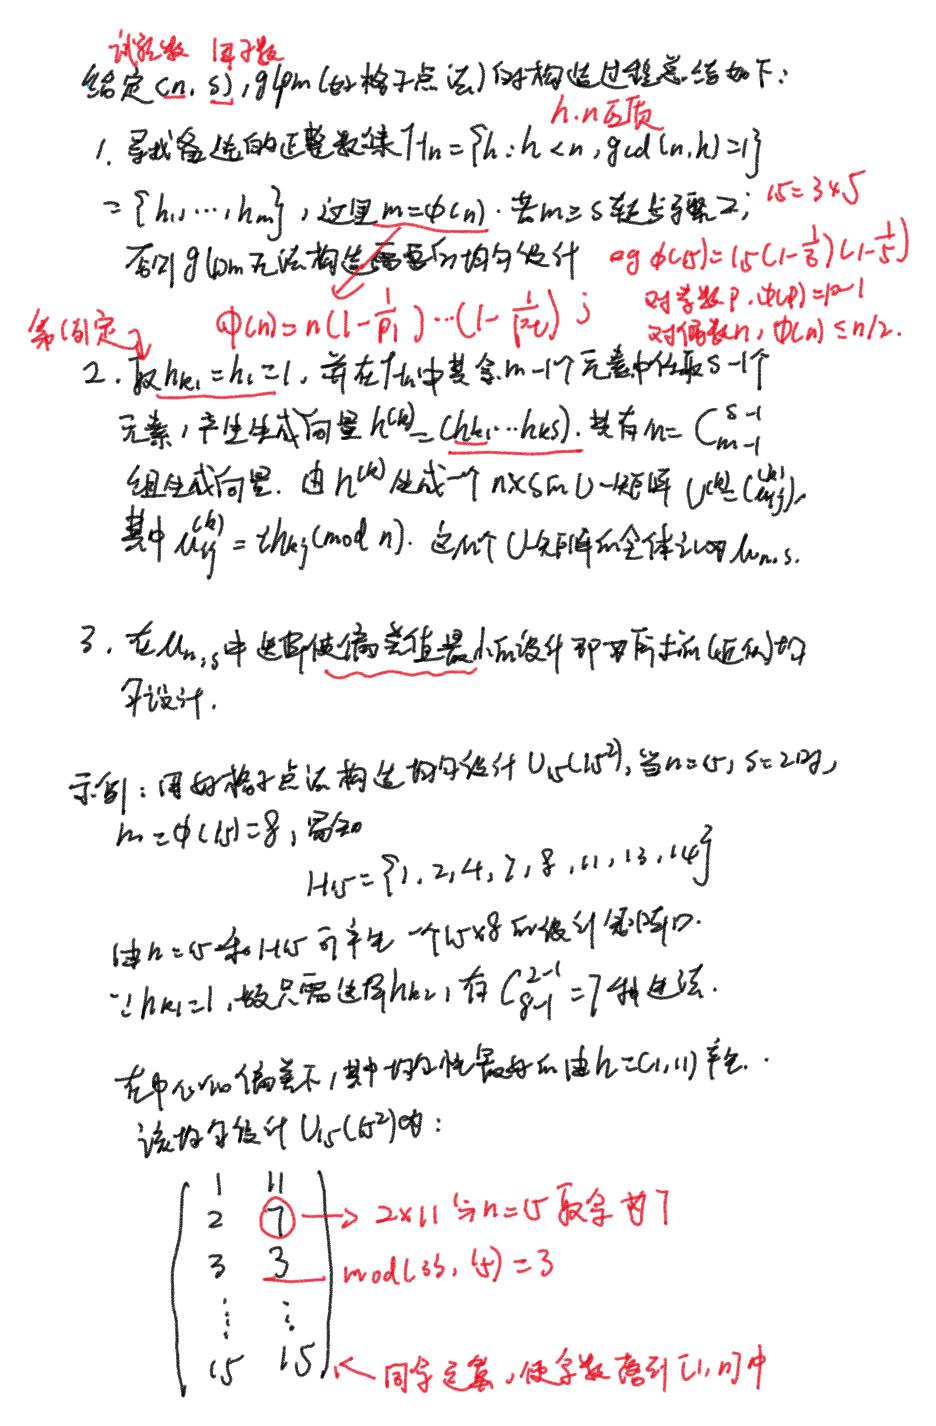 试验数 因子数
给定(n, s), glpm(好格子点法)的构造过程总结如下:
h.n互质
1. 寻找备选的正整数集Hn={h:h<n, gcd(n,h)=1}
={h1,…,hm}, 这里m=φ(n). 若m≥s转步骤2;
15=3×5
否则glpm无法构造所需要的均匀设计
eg φ(15)=15(1-1/3)(1-1/5)
对素数p, φ(p)=p-1
φ(n)=n(1-1/p1)…(1-1/pt);
对偶数n, φ(n)≤n/2.
2. 取hk1=h1=1, 并在Hn中其余m-1个元素中任取s-1个
元素, 产生生成向量h(k)=(hk1…hks). 共有n=C m-1 s-1
组生成向量. 由h(k)生成一个n×s的U-矩阵 U(k)=(uij(k)),
其中uij(k)=ihkj(mod n). 这n个U矩阵的全体记为Un,s.
3. 在Un,s中选取使偏差值最小的设计即为所求的(近似)均
匀设计.
示例: 用好格子点法构造均匀设计U15(15²), 当n=15, s=2时,
m=φ(15)=8, 易知
H15={1,2,4,7,8,11,13,14}
由n=15和H15可产生一个15×8的设计矩阵D.
∵hk1=1, 故只需选择hk2, 有C 8-1 2-1=7种选法.
在中心化偏差下, 其中均匀性最好的由h=(1,11)产生.
该均匀设计U15(15²)为:
1 11
2 7 → 2×11与n=15取余为7
3 3 mod(33,15)=3
⋮ ⋮
15 15 ← 同余定义, 使余数落到[1,n]中